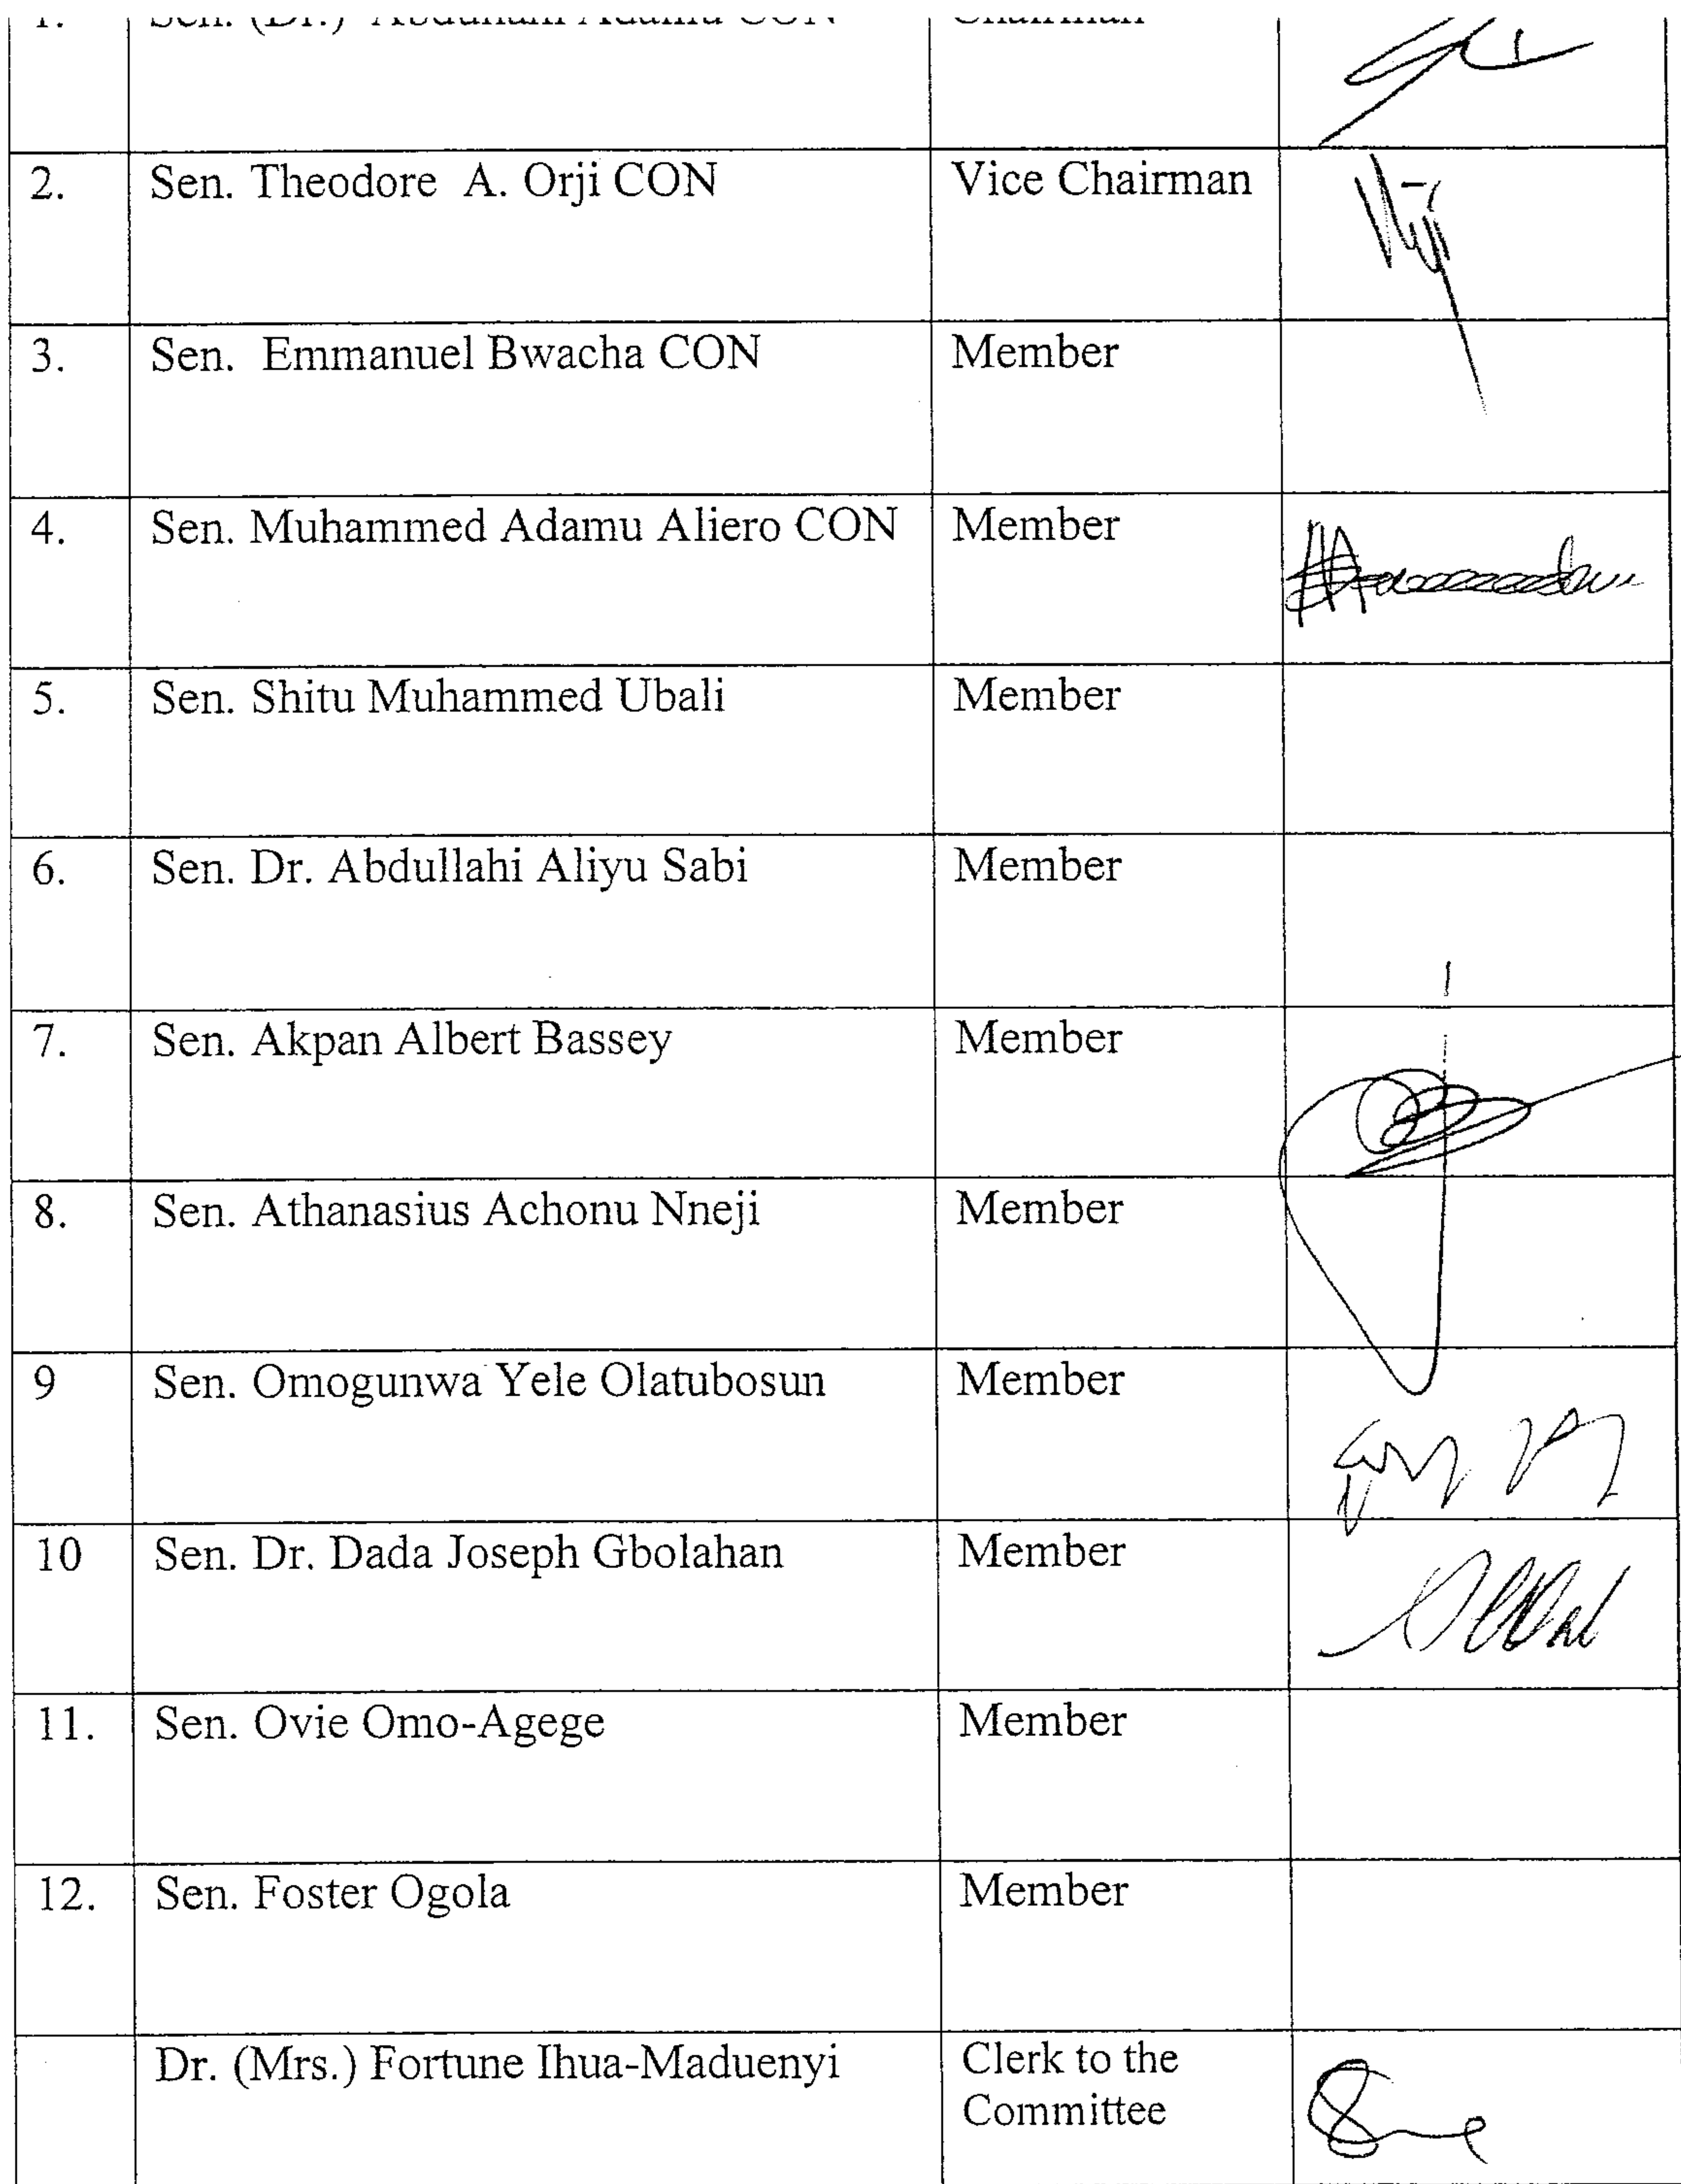 2. Sen. Theodore A. Orji CON Vice Chairman
3. Sen. Emmanuel Bwacha CON Member
4. Sen. Muhammed Adamu Aliero CON Member
5. Sen. Shitu Muhammed Ubali Member
6. Sen. Dr. Abdullahi Aliyu Sabi Member
7. Sen. Akpan Albert Bassey Member
8. Sen. Athanasius Achonu Nneji Member
9 Sen. Omogunwa Yele Olatubosun Member
10 Sen. Dr. Dada Joseph Gbolahan Member
11. Sen. Ovie Omo-Agege Member
12. Sen. Foster Ogola Member
Dr. (Mrs.) Fortune Ihua-Maduenyi Clerk to the
Committee